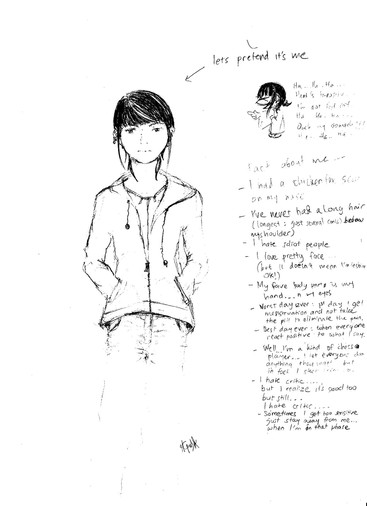 lets pretend it's me
Ha.. Ha.. Ha...
I'm not
Ha.. He.. Ha...
Fact about me ...
- I had a chickenpox scar
on my
- I've never had a long hair
(longest : just several cm(s) below
my shoulder)
- I hate idiot people
- I love pretty face
(but it doesn't mean I'm lesbian
OK!)
- My fave body parts is my
hand.... n my eyes
- Worst day ever : 1st day I get
menstruation and not take
the pill to eliminate the pain,
- Best day ever : when everyone
react positive to what I say,
- Well, I'm a kind of chess
player... I let everyone do
anything they want but
it feel I
- I hate critic.....
but I realize it's good too
but still...
I hate critic....
- Sometimes I got too sensitive
just stay away from me...
when I'm on that phase